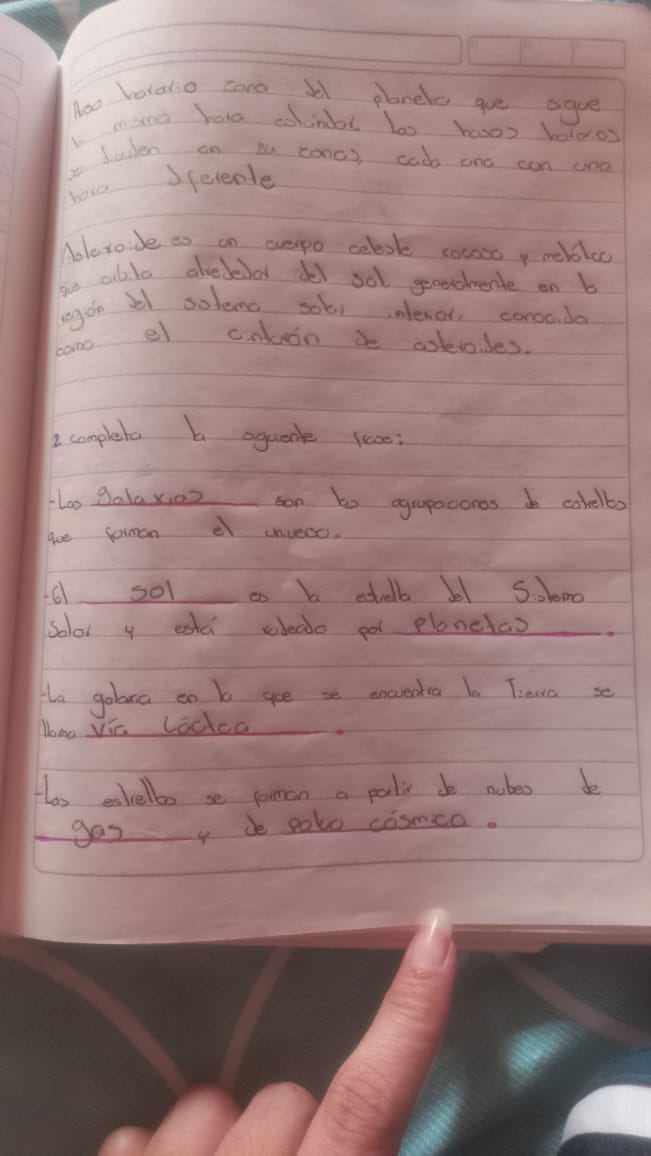 horario zona del planeta que sigue
misma hora estándar los husos horarios
se en 24 zonas, cada una con una
hora diferente
Asteroide es un cuerpo celeste rocoso y metálico
que orbita alrededor del sol generalmente en la
región del sistema solar interior, conocida
como el cinturón de asteroides.
2 completa la siguiente frase:
-Las galaxias son las agrupaciones de estrellas
que forman el universo.
-El sol es la estrella del Sistema
Solar y está por planetas.
-La galaxia en la que se encuentra la Tierra se
llama Vía Láctea.
-Las estrellas se forman a partir de nubes de
gas y de polvo cósmico.